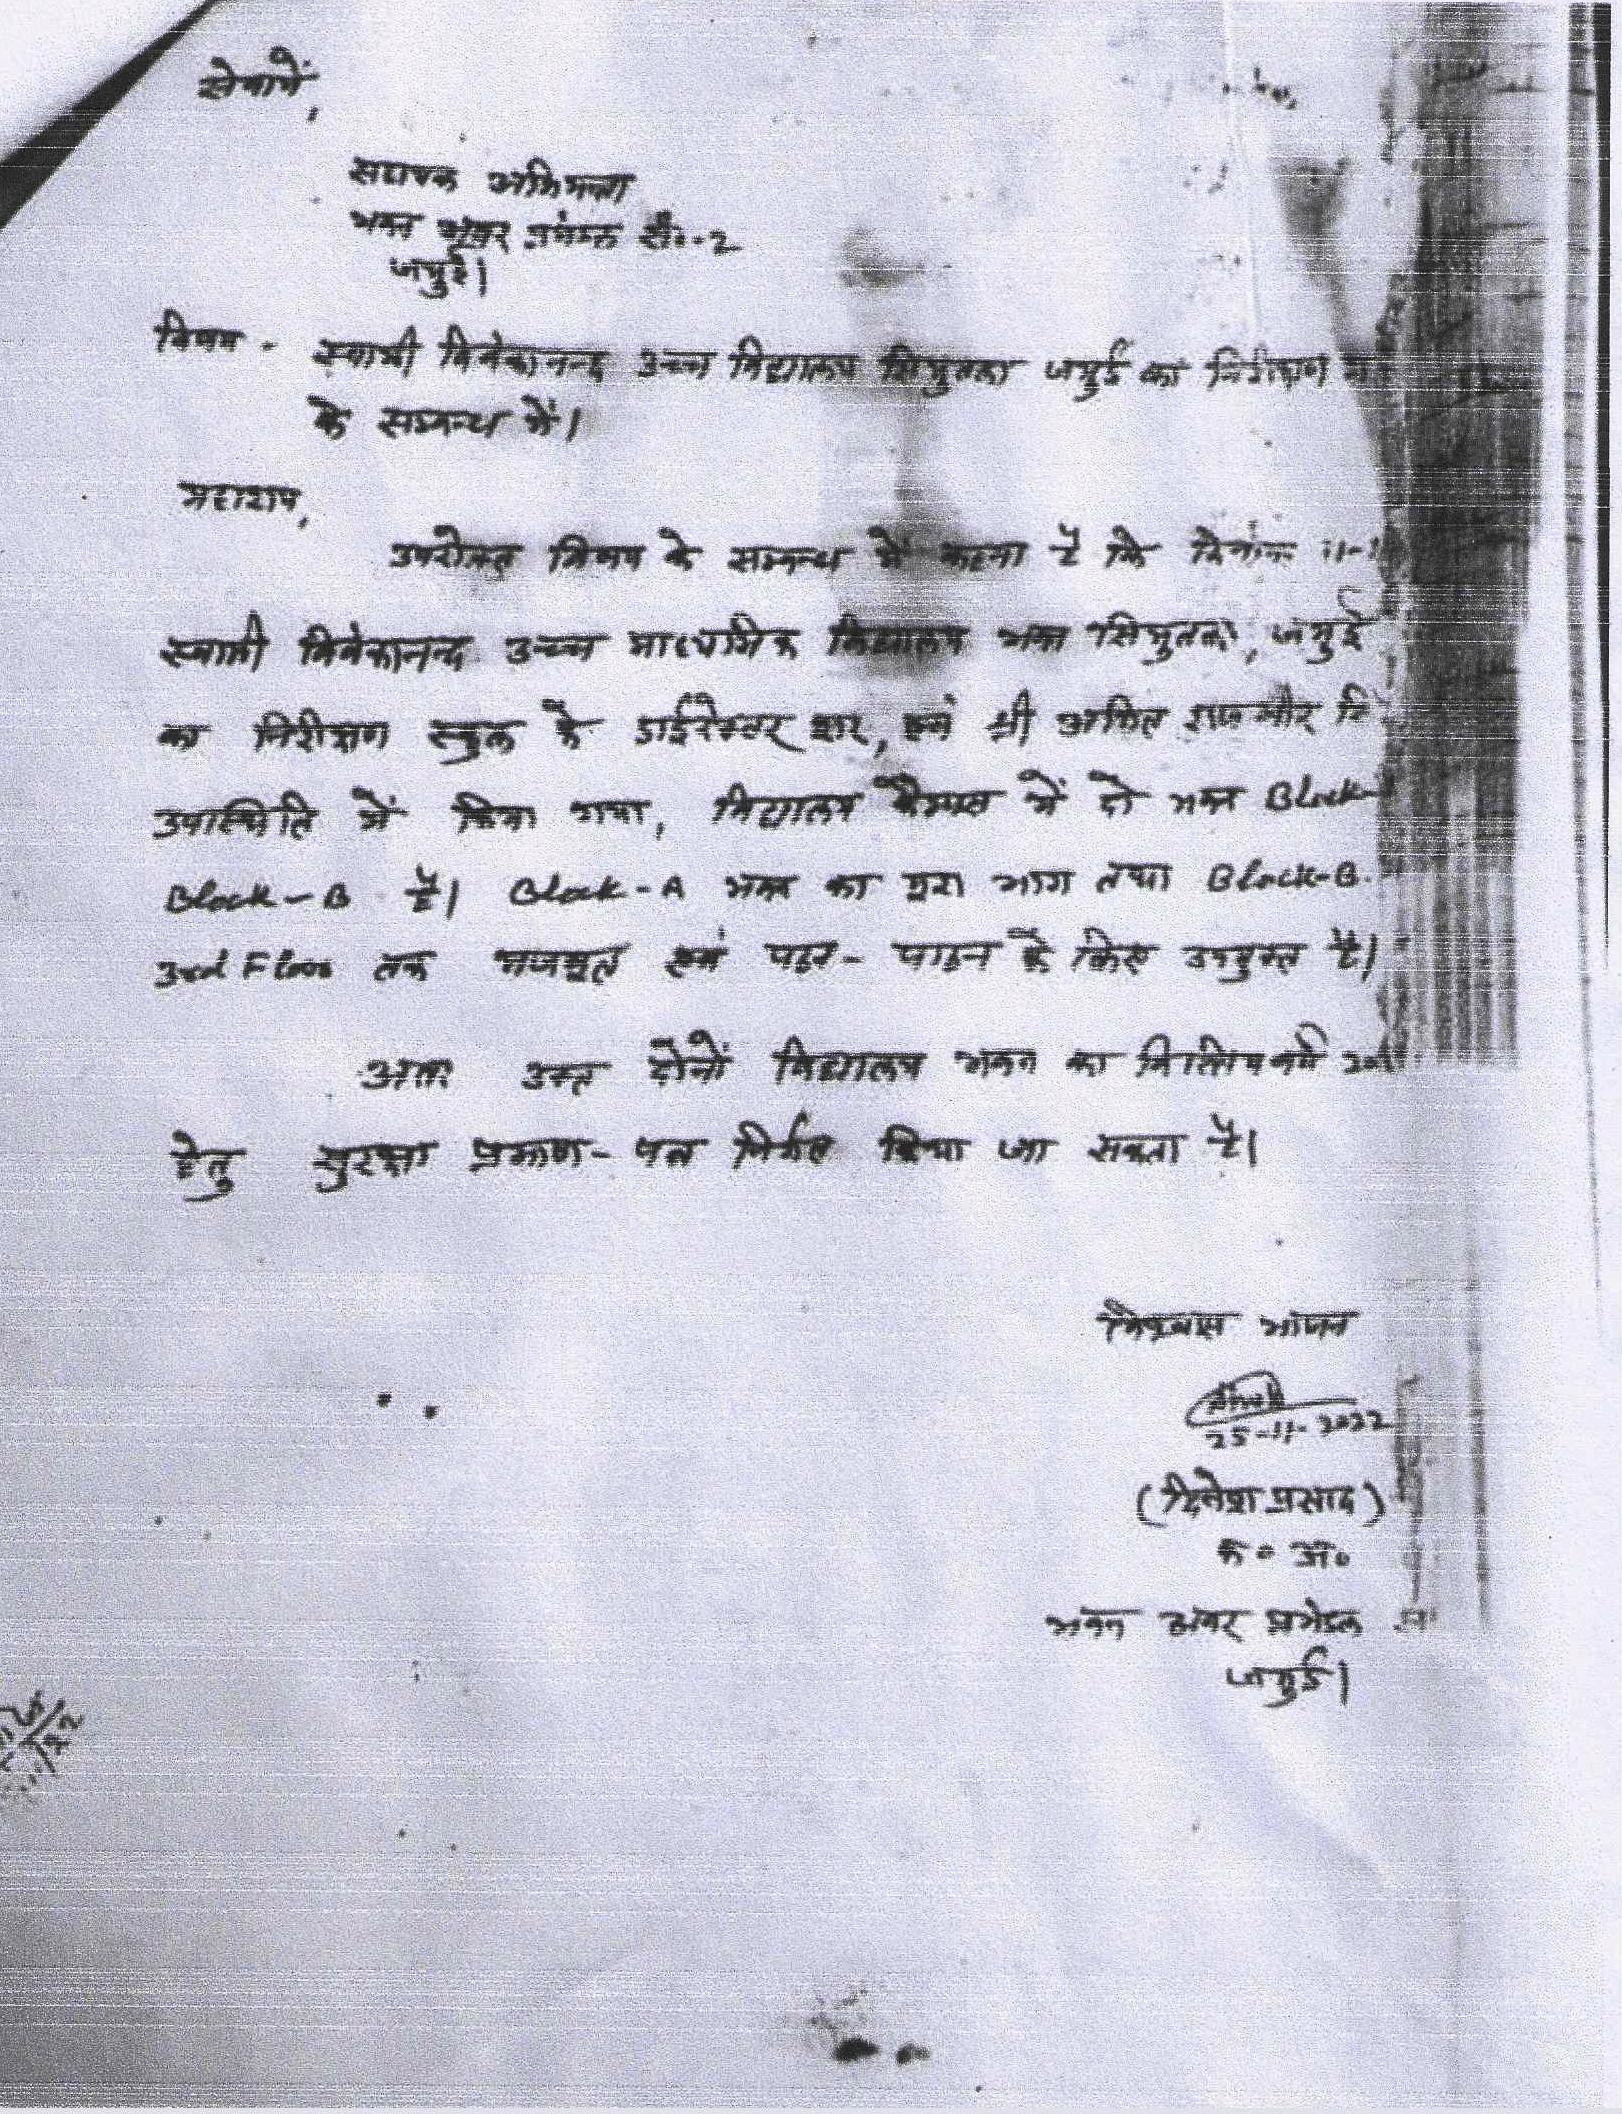 सेवामें,
सहायक अभियन्ता
भवन अवर प्रमंडल सं०-2
जमुई।
विषय - स्वामी विवेकानन्द उच्च विद्यालय सिमुलतला जमुई का निरीक्षण
के सम्बन्ध में।
महाशय,
उपरोक्त विषय के सम्बन्ध में कहना है कि दिनांक 11-
स्वामी विवेकानन्द उच्च माध्यमिक विद्यालय भवन सिमुलतला, जमुई
का निरीक्षण स्कूल के डाईरेक्टर सर, एवं श्री अमित राजमौर कि
उपस्थिति में किया गया, विद्यालय कैम्पस में दो भवन Block-
Block-B है। Block-A भवन का पूरा भाग तथा Block-B.
3rd Floor तक मजबूत एवं पठन-पाठन के लिए उपयुक्त है।
अतः उक्त दोनों विद्यालय भवन का वित्तिय वर्ष 20
हेतु सुरक्षा प्रमाण-पत्र निर्गत किया जा सकता है।
विश्वास भाजन
25-11-2022
(दिनेश प्रसाद)
क० अ०
भवन अवर प्रमंडल
जमुई।